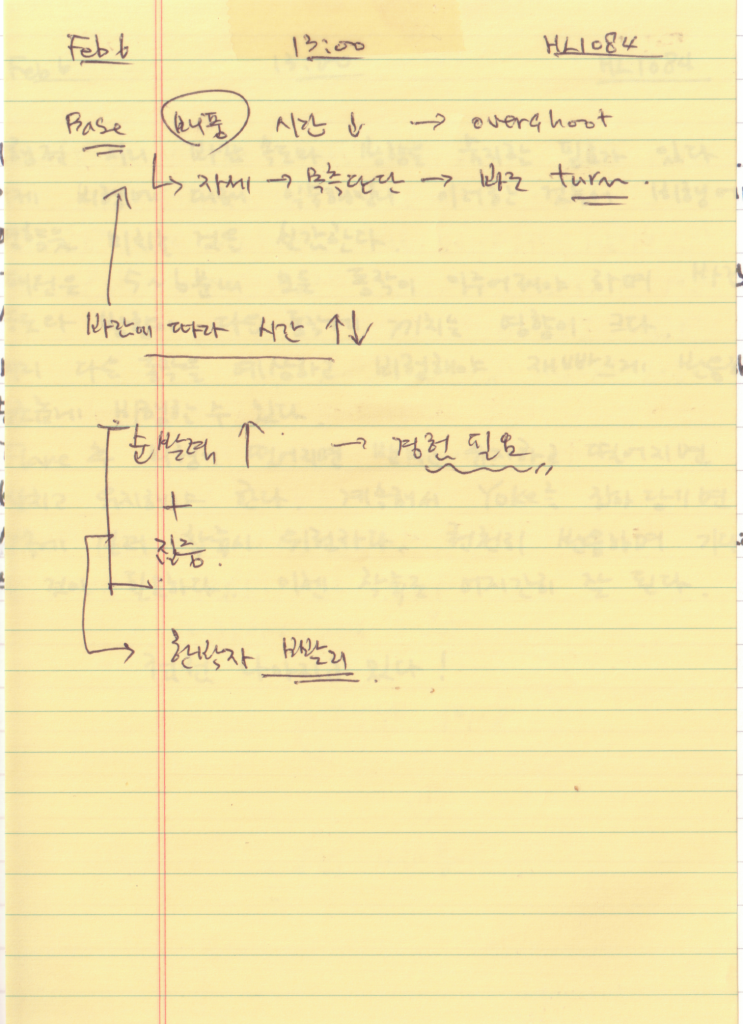 Feb 6 13:00 HL1084
Base 배풍 시간 ↓ → overshoot
↳ 자세 → 목측판단 → 바로 turn.
바람에 따라 시간 ↑↓
순발력 ↑ → 경험 필요
+
집중.
→ 한박자 빨리